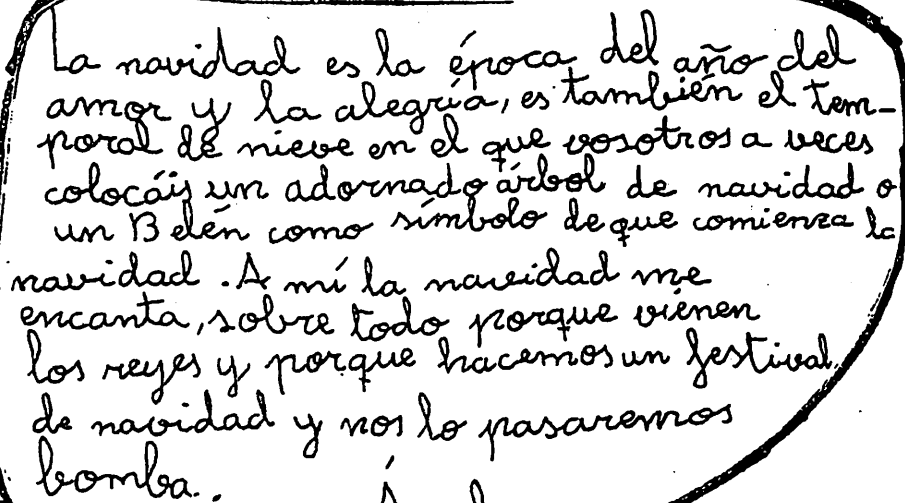 La navidad es la época del año del
amor y la alegría, es también el tem-
poral de nieve en el que vosotros a veces
colocáis un adornado árbol de navidad o
un Belén como símbolo de que comienza la
navidad. A mí la navidad me
encanta, sobre todo porque vienen
los reyes y porque hacemos un festival
de navidad y nos lo pasaremos
bomba.